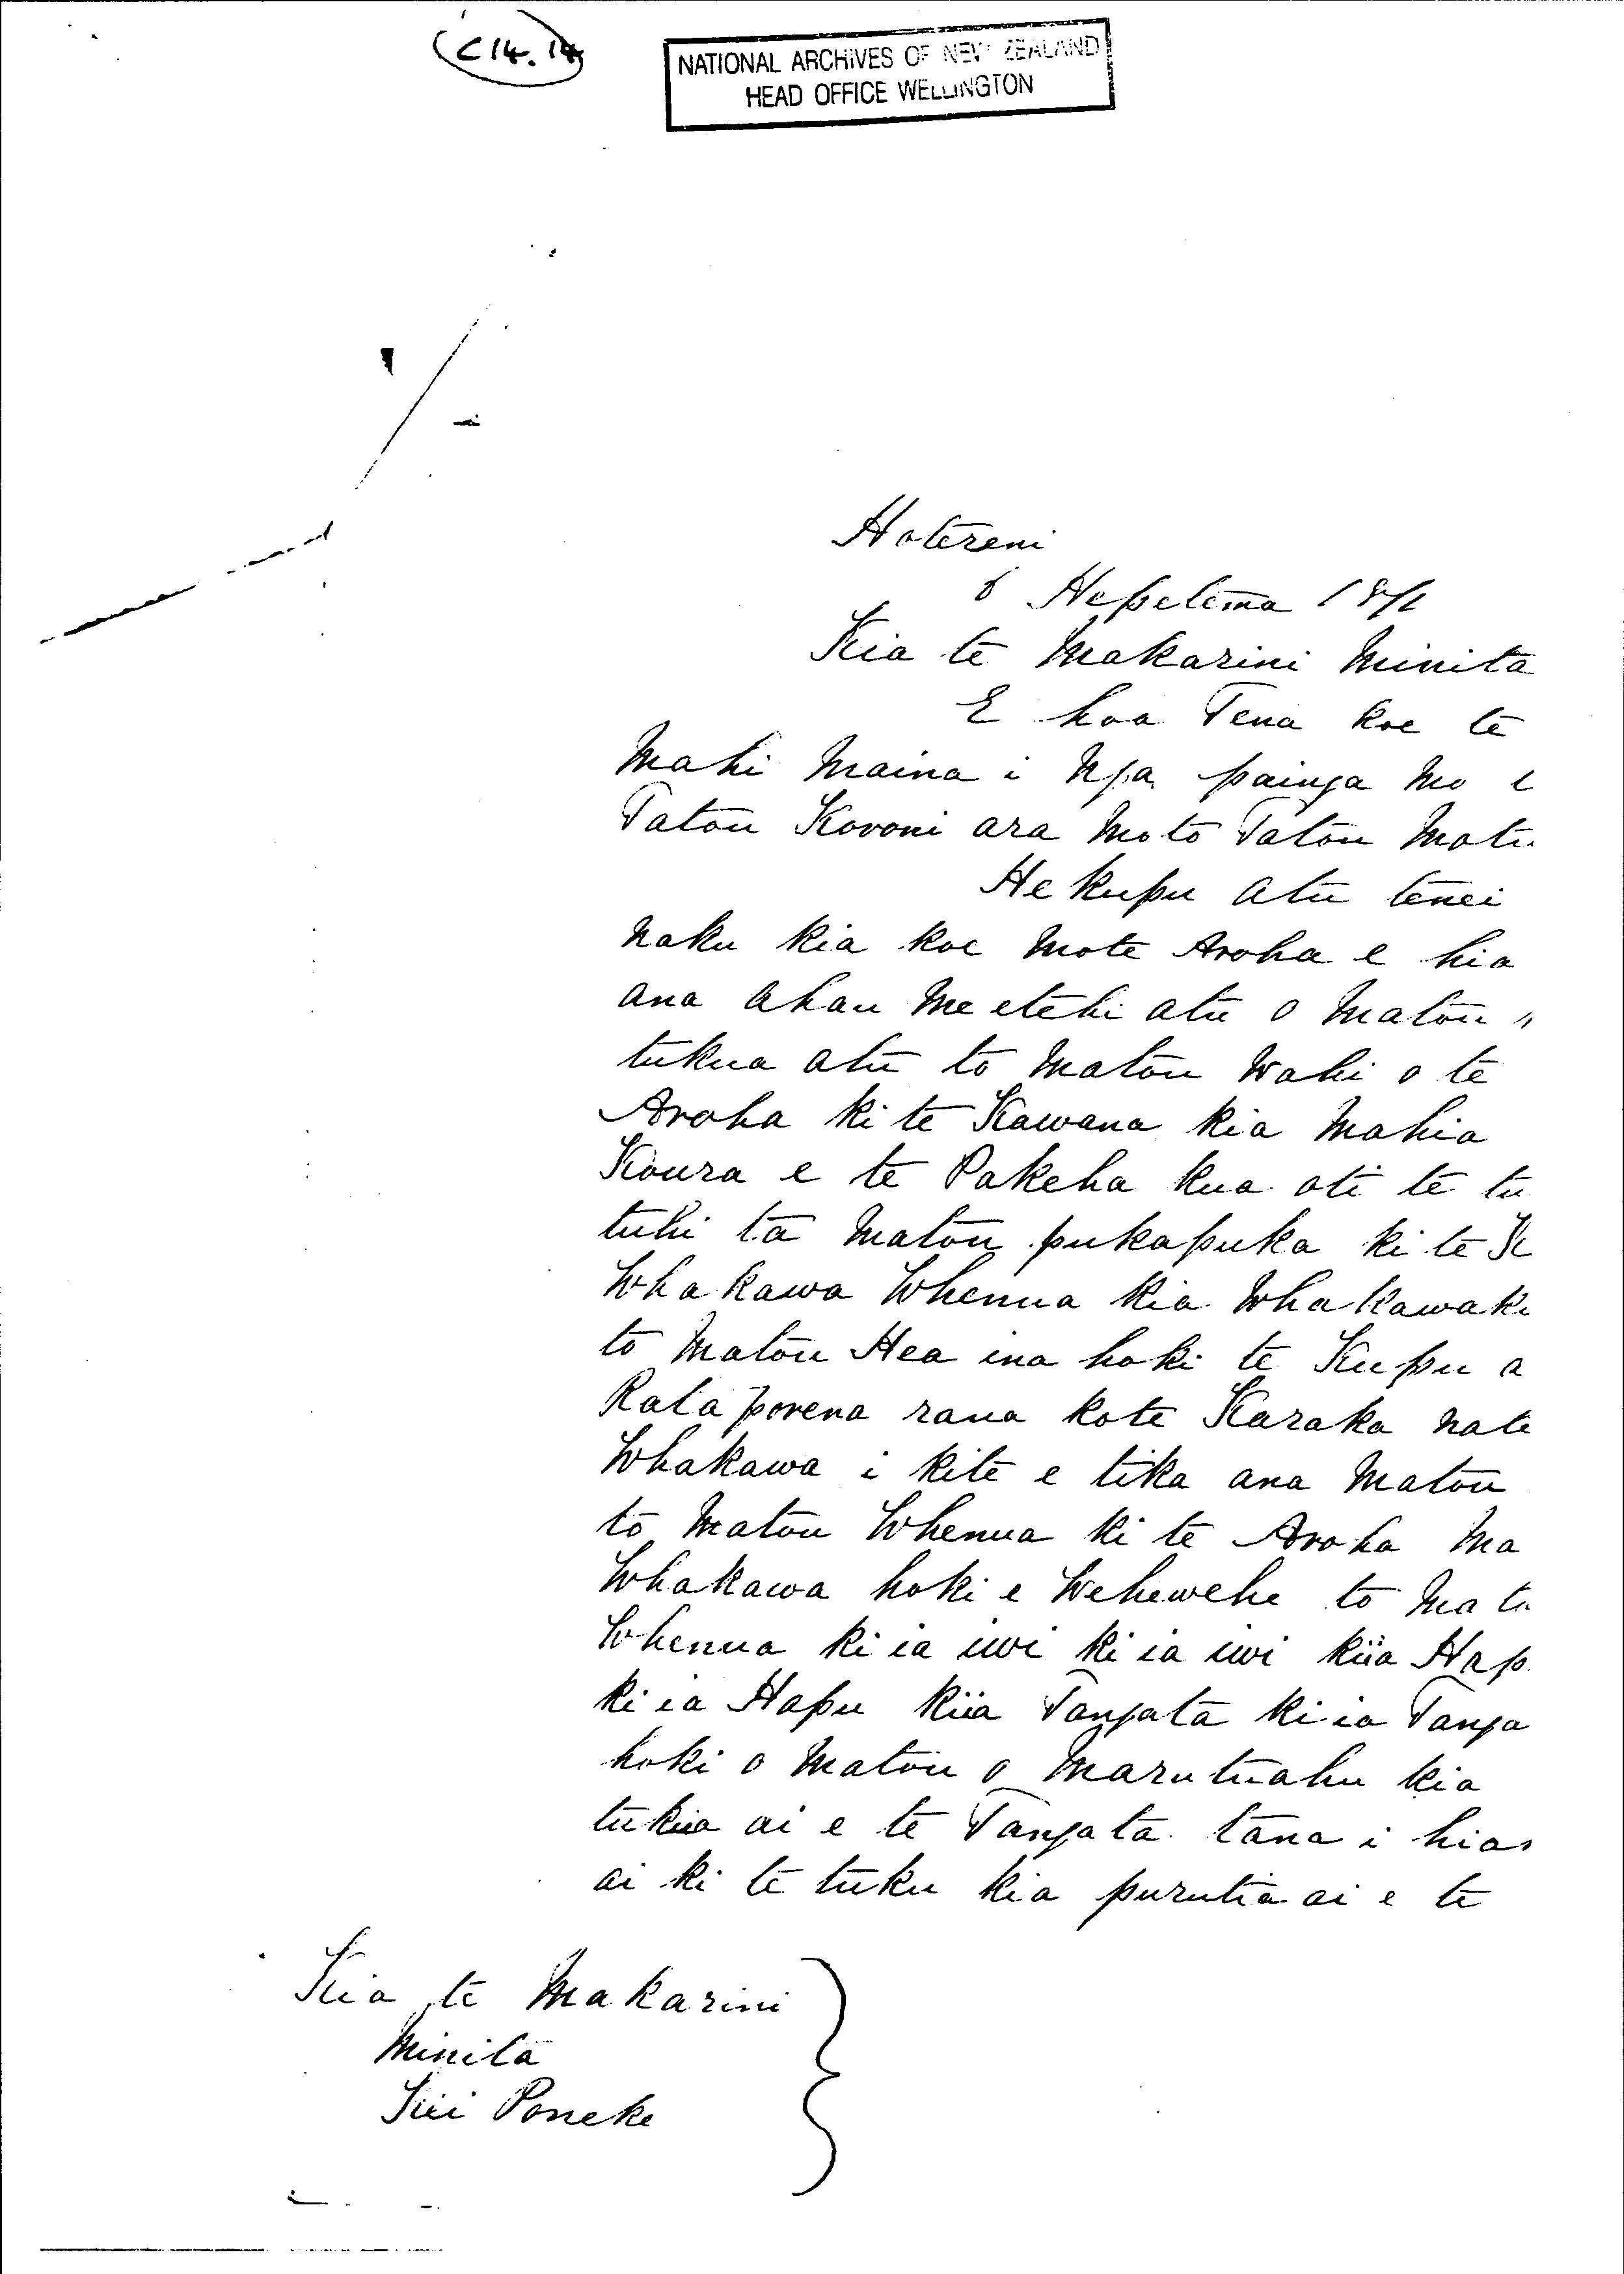 C14.14
NATIONAL ARCHIVES OF NEW ZEALAND
HEAD OFFICE WELLINGTON
Hotereni
6 Hepetema 1871
Kia te Makarini Minita
E hoa Tena koe te
Mahi Maina i Nga painga Mo
Tatou Koroni ara Moto Tatou Motu
He kupu atu tenei
naku kia koe Mote Aroha e hia
ana ahau Me etehi atu o Matou "
tukua atu to Matou Wahi o te
Aroha ki te Kawana kia Mahia
Koura e te Pakeha kua oti te tu
tuhi ta Matou pukapuka ki te K
Whakawa Whenua kia Whakawaki
to Matou Hea ina hoki te Kupu a
Rata porena raua kote Karaka nate
Whakawa i kite e tika ana Matou
to Matou Whenua ki te Aroha Ma
Whakawa hoki e Wehewehe to Mato
Whenua ki ia iwi ki ia iwi kiia Hap
ki ia Hapu kiia Tangata ki ia Tanga
hoki o Matou o Marutuahu kia
tukua ai e te Tangata tana i hia
ai ki te tuku kia purutia ai e te
Kia te Makarini
Minita
Kii Poneke